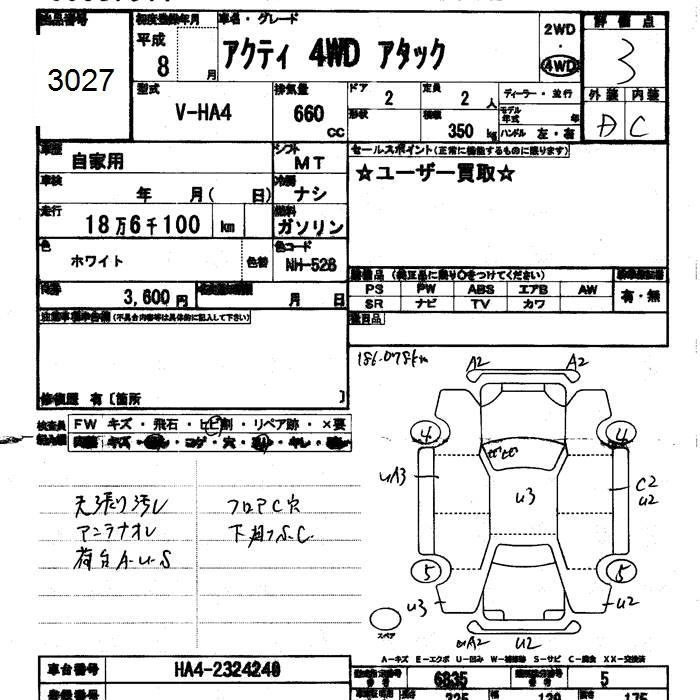 出品番号 初度登録年月 車名・グレード 評価点
3027 平成 8 月 アクティ 4WD アタック 2WD ・ 4WD 3
型式 排気量 ドア 定員 ディーラー・並行 外装 内装
V-HA4 660 cc 2 2 人 モデル年式 年 D C
形状 積載 350 kg ハンドル 左・右
車歴 自家用 シフト MT セールスポイント(正常に機能するものに限ります)
車検 年 月( 日) 冷房 ナシ ☆ユーザー買取☆
走行 18万6千100 km 燃料 ガソリン
色 ホワイト 色替 色コード NH-528
装備品 (純正品に限り〇をつけてください)
3,600 円 月 日 PS PW ABS エアB AW 有・無
SR ナビ TV カワ
(不具合内容等は具体的に記入して下さい)
修復歴 有〔箇所 〕
検査員 FW キズ・飛石・ヒビ割・リペア跡・×要
186.078km
A2 A2
4 4
ガビガビ
uA3 u3 C2 u2
天張り汚レ フロアC穴
アンテナオレ 下廻りS.C.
荷台A-u-S
5 5
u3 u2
スペア
uA2 u2
A-キズ E-エクボ U-凹み W-補修跡 S-サビ C-腐食 XX-交換済
車台番号 HA4-2324240
6835 5
325 139 175